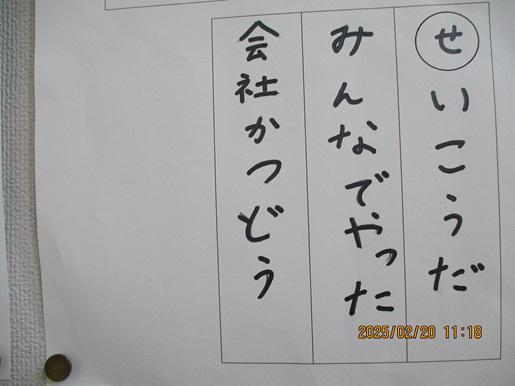 せいこうだ
みんなでやった
会社かつどう
2025/02/20 11:18